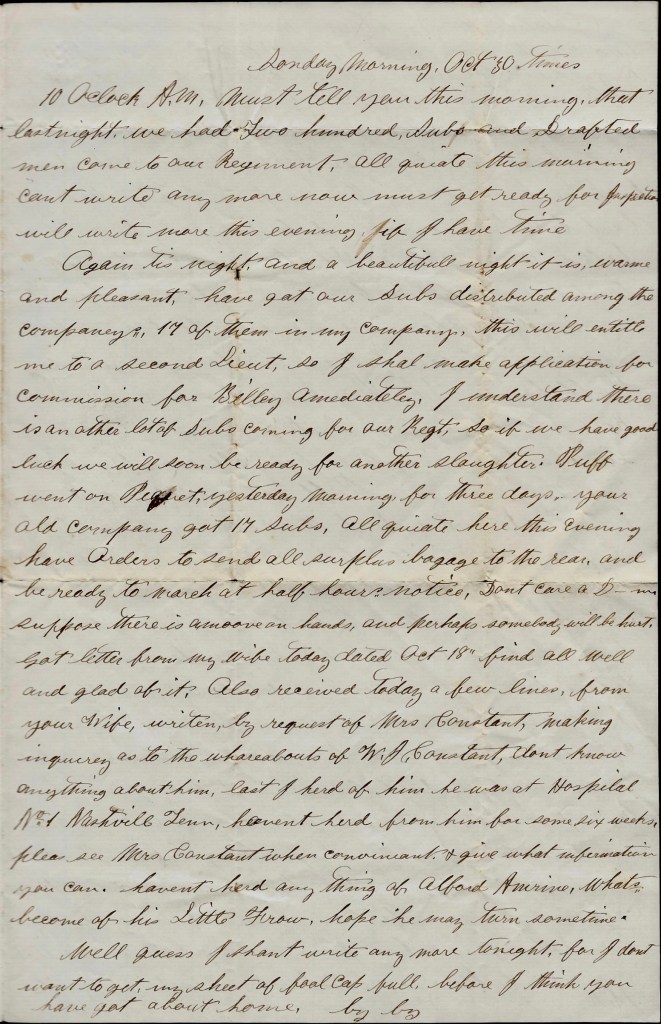 Sonday Morning, Oct 30 Times
10 Oclock A.M, Must tell you this morning, that
lastnight, we had Two hundred, Subs and Drafted
men come to our Regiment, all quiate this morning
cant write any more now must get ready for Inspection
will write more this evening, if I have time
Again tis night, and a beautifull night it is, warme
and pleasant, have got our Subs distributed among the
companeys, 17 of them in my company, this will entitle
me to a second Lieut, so I shal make application for
commission for Billey Amediateley, I understand there
is an other lot of Subs coming for our Regt, so if we have good
luck we will soon be ready for another slaughter. Puff
went on Picquet, yesterday Morning for three days, your
old company got 17 subs, all quiate here this Evening
have Orders to send all surplus bagage to the rear, and
be ready to march at half hours notice, Dont care a D—m
suppose there is a moove on hands, and perhaps somebody will be hurt.
Got letter from my Wife today dated Oct 18" find all well
and glad of it, Also received today a few lines, from
your Wife, writen, by request of Mrs Constant, making
inquirey as to the whareabouts of W. J. Constant, dont know
anything about him, last I herd of him he was at Hospital
No 1 Nashvill Tenn, havent herd from him for some six weeks,
pleas see Mrs Constant when convineant & give what information
you can. havent herd any thing of Alford Amrine, Whats
become of his Little Frow, hope he may turn sometime.
Well guess I shant write any more tonight, for I dont
want to get, my sheet of fool cap full, before I think you
have got about home, by by